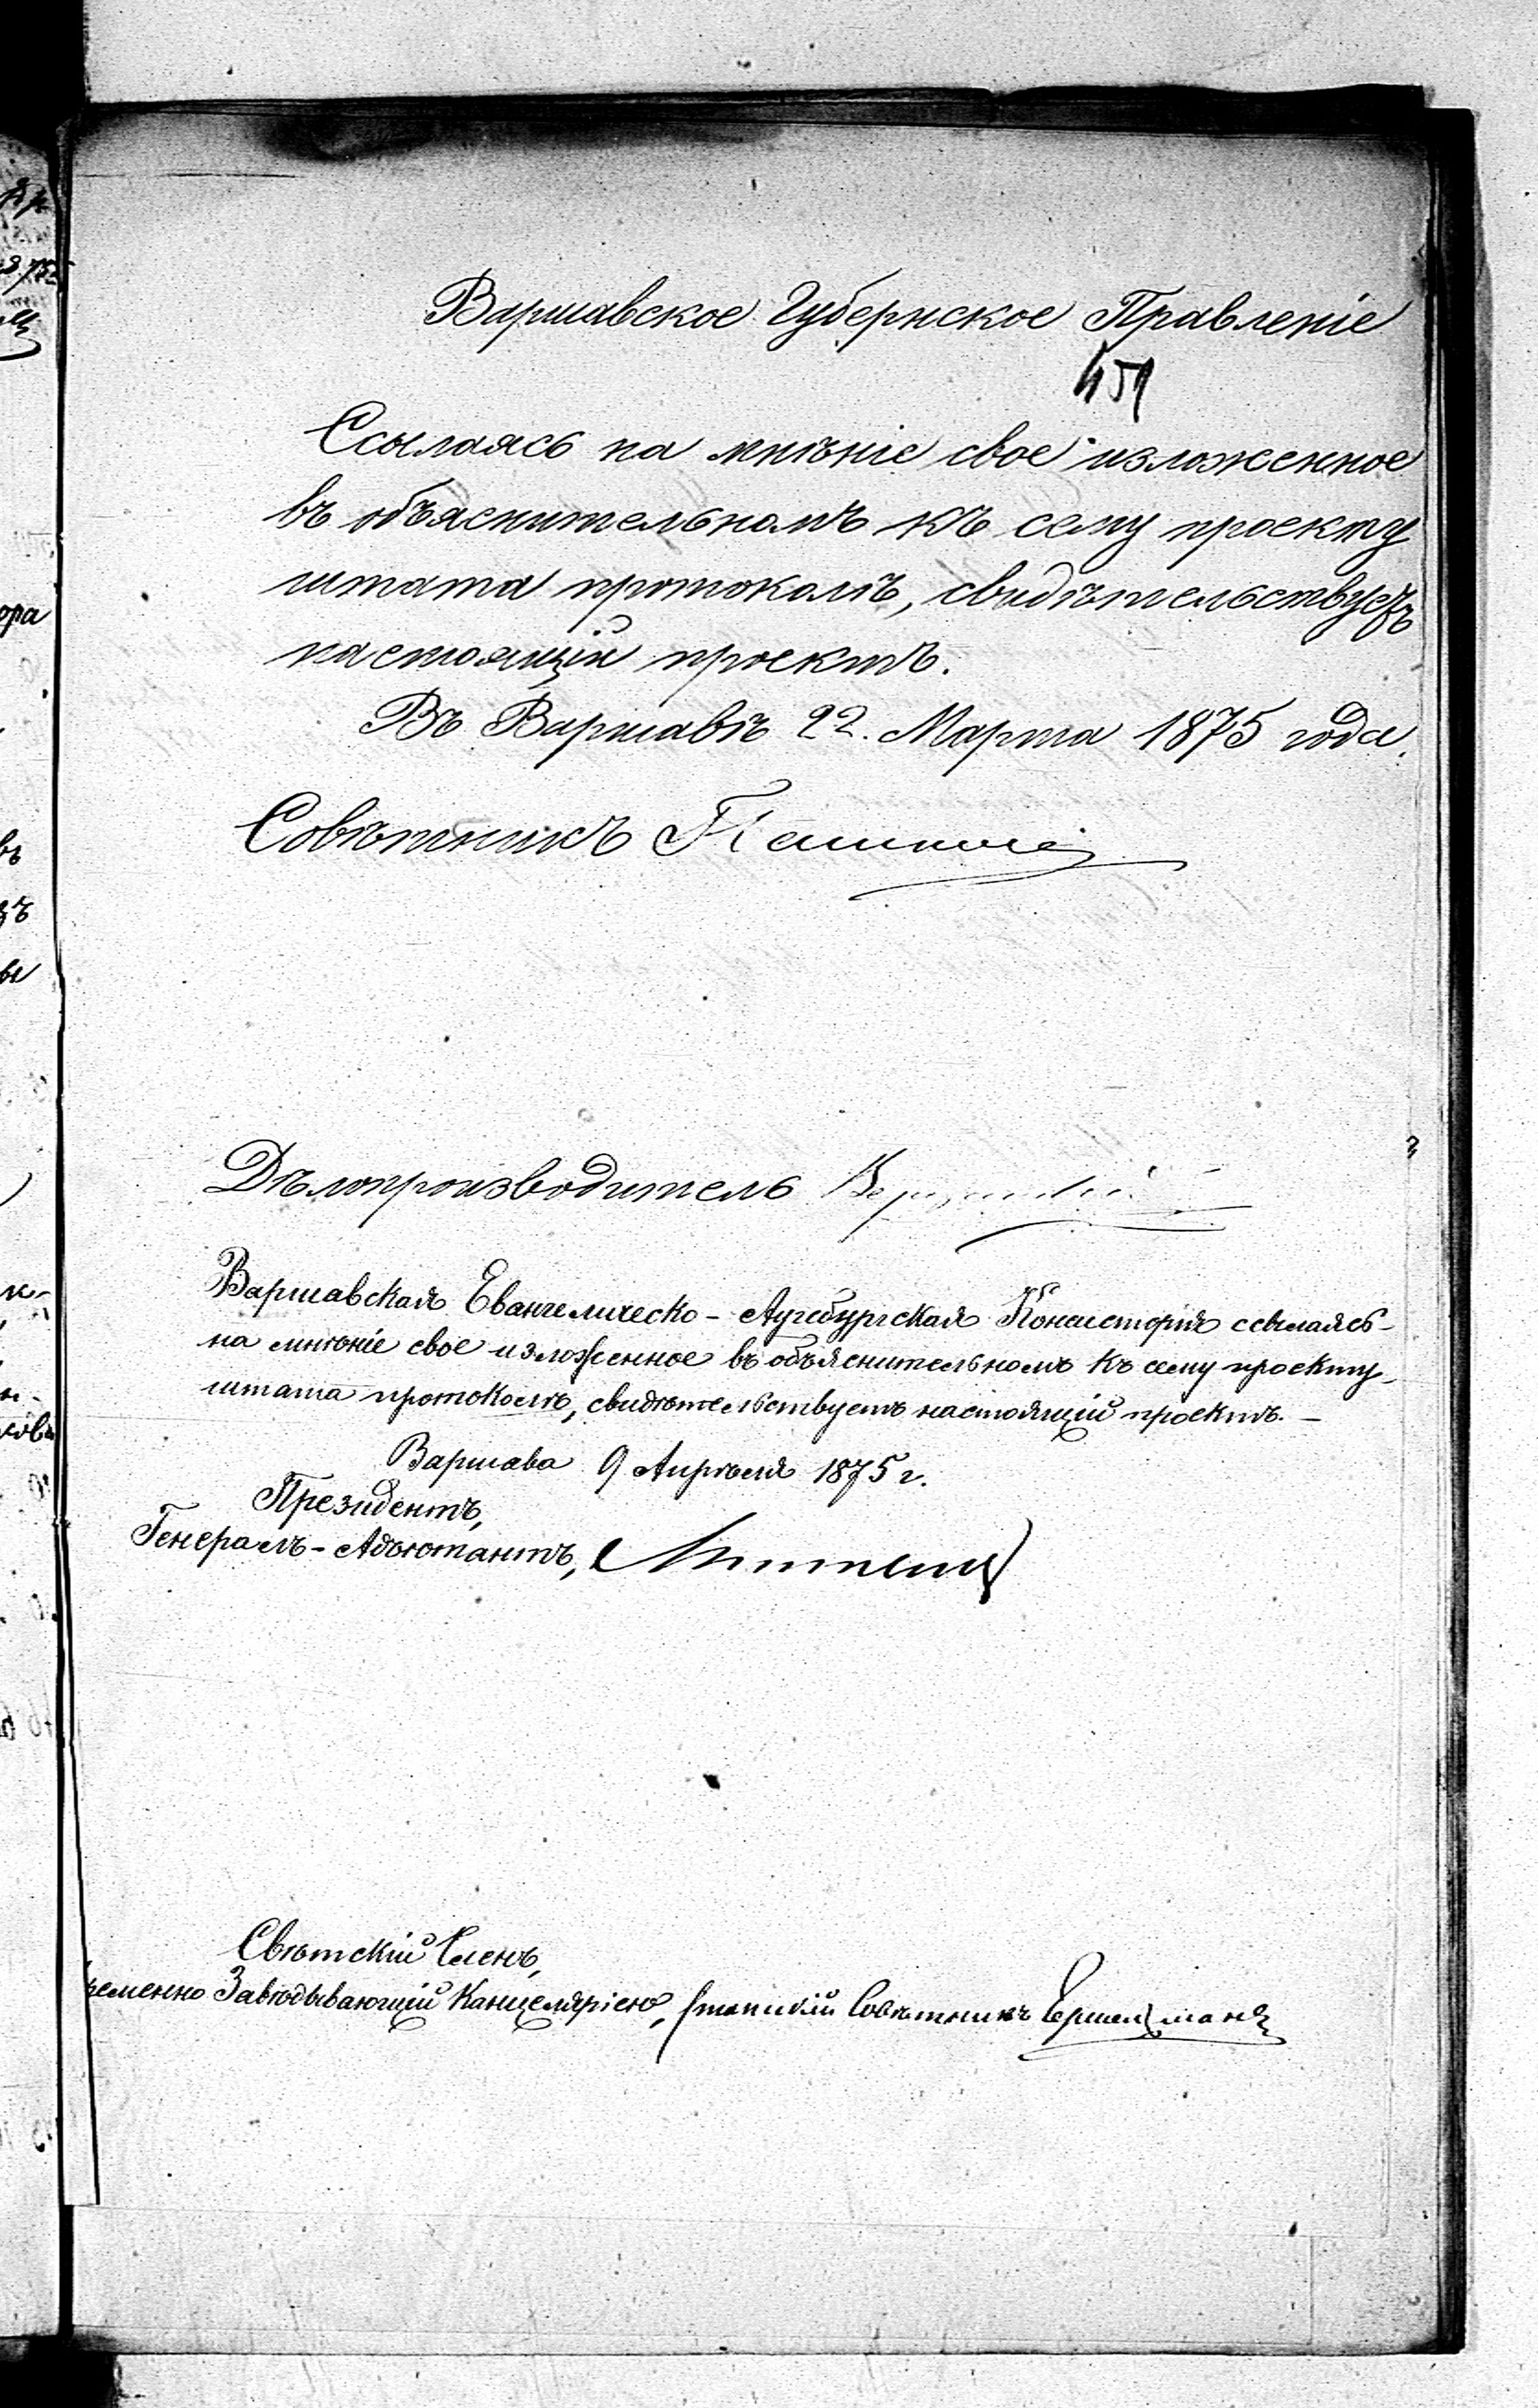 Варшавское Губернское Правленіе
451
Ссылаясь на мнѣніе свое изложенное
въ объяснительномъ къ сему проекту
штата протоколѣ, свидѣтельствуетъ
настоящій проектъ.
Въ Варшавѣ 22. Марта 1875 года.
Совѣтникъ
Дѣлопроизводитель
Варшавская Евангелическо-Аугсбургская Консисторія ссылаясь
на мнѣніе свое изложенное въ объяснительномъ къ сему проекту
штата протоколѣ, свидѣтельствуетъ настоящій проектъ. —
Варшава 9 Апрѣля 1875 г.
Президентъ,
Генералъ-Адъютантъ,
Свѣтскій Членъ,
ременно Завѣдывающій Канцеляріею, Статскій Совѣтникъ